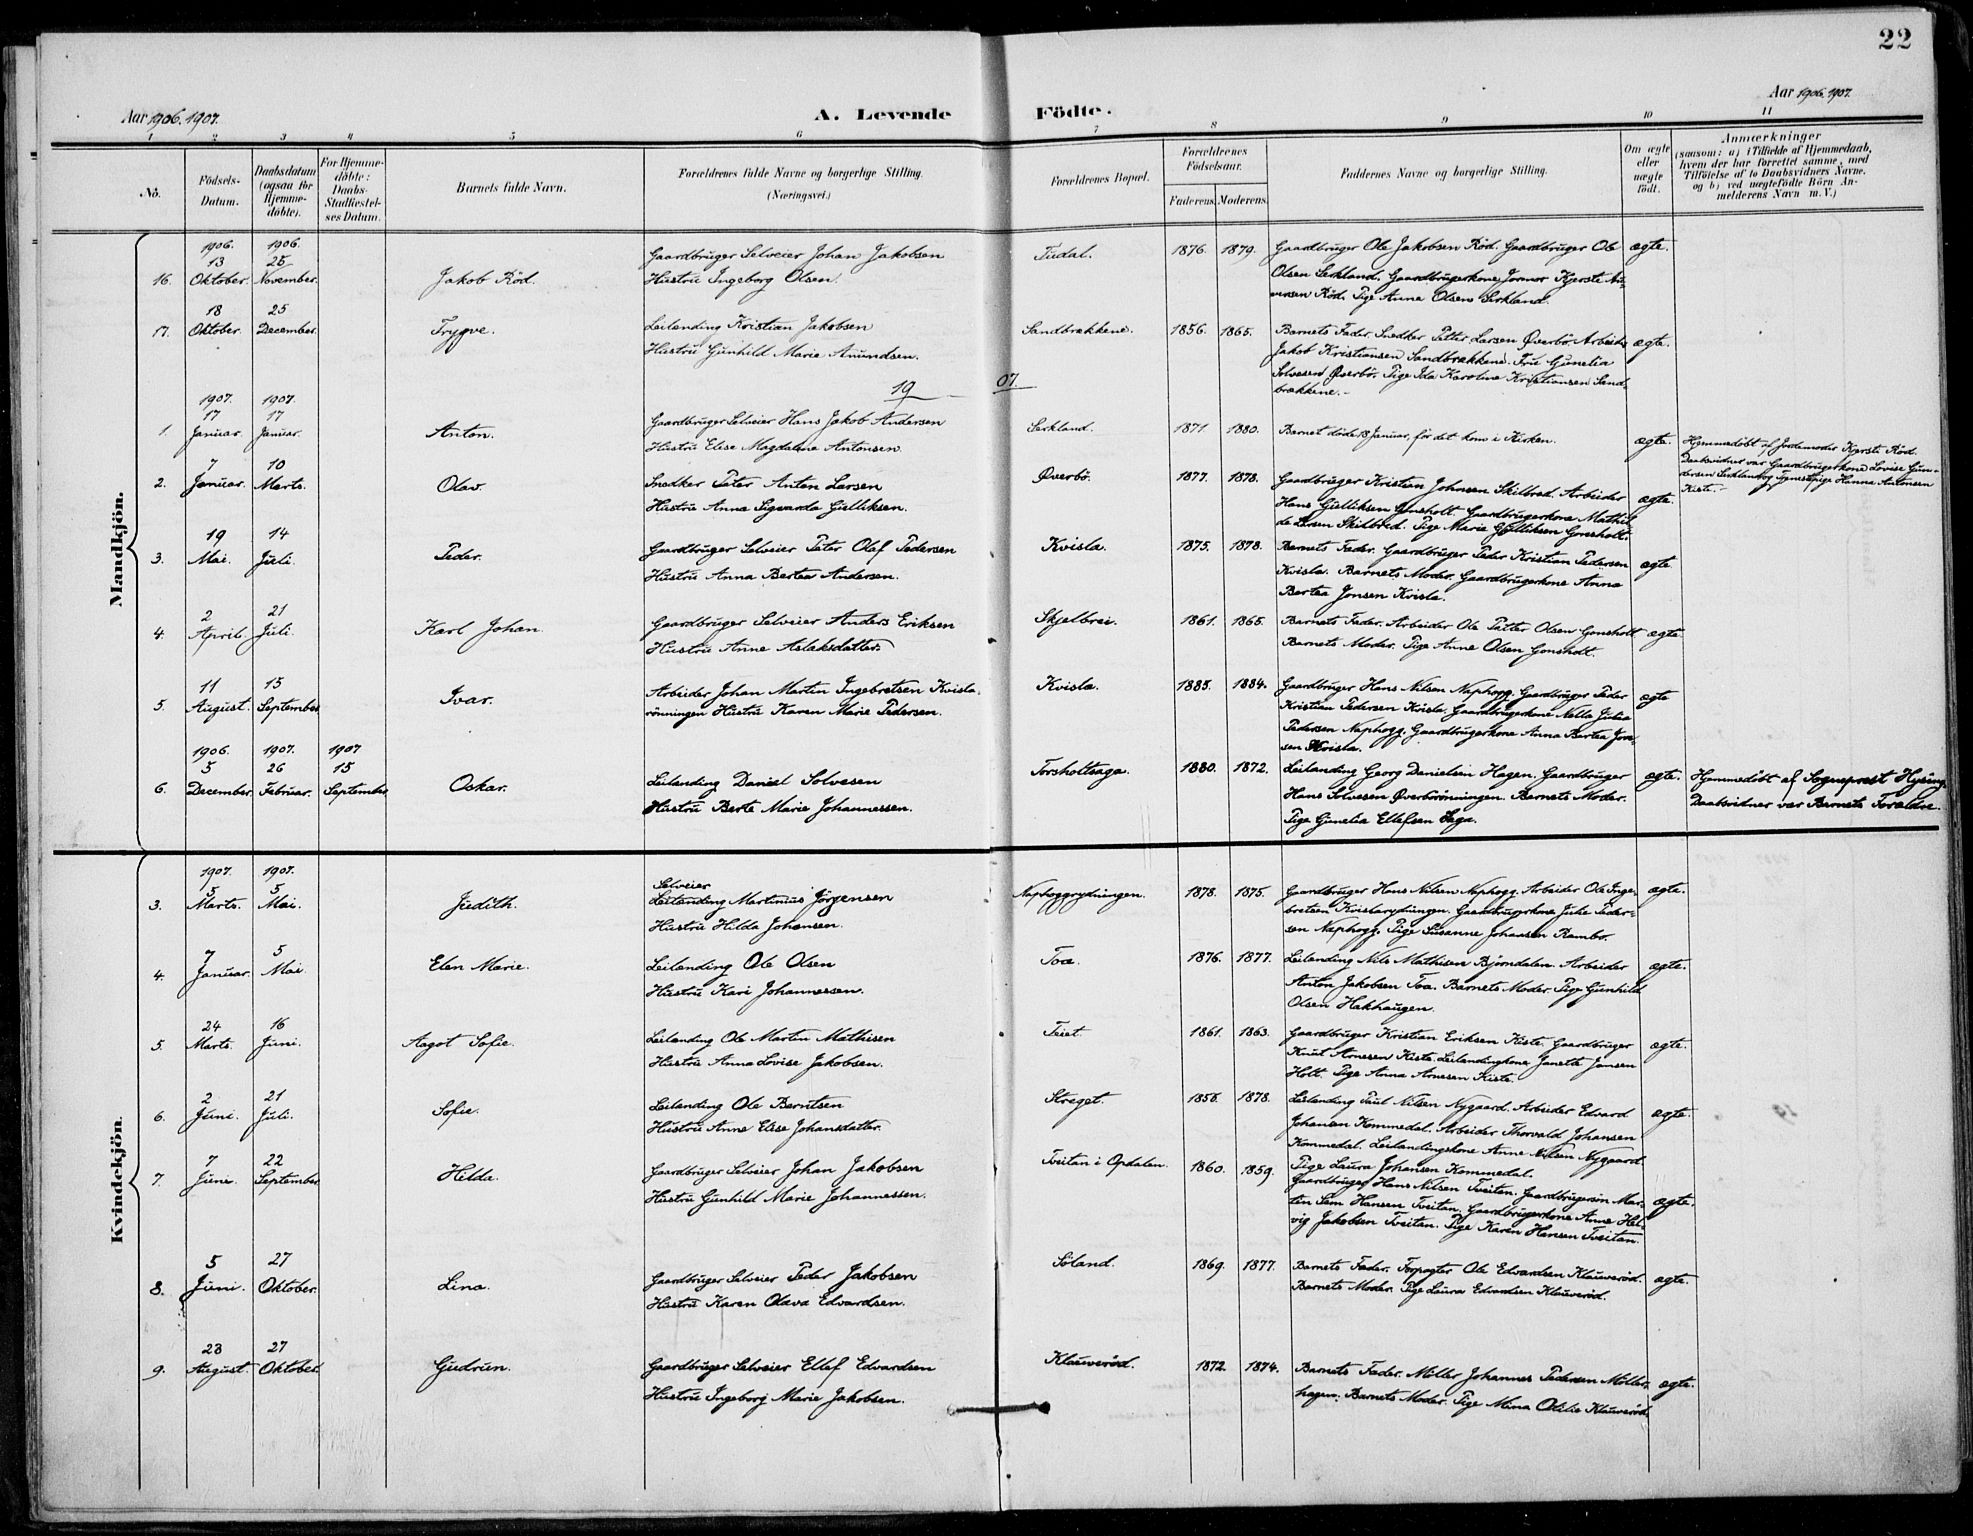 22
Aar 1906. 1907.
A. Levende Födte.
Aar 1906. 1907.
1 2 3 4 5 6 7 8 9 10 11
No.
Födsels-Datum.
Daabsdatum (ogsaa for Hjemme-döbte).
For Hjemme-döbte: Daabs-Stadfæstel-ses Datum.
Barnets fulde Navn.
Forældrenes fulde Navne og borgerlige Stilling.
(Næringsvei.)
Forældrenes Bopæl.
Forældrenes Födselsaar.
Faderens. Moderens.
Faddernes Navne og borgerlige Stilling.
Om ægte eller uægte födt.
Anmærkninger
(saasom: a) i Tilfælde af Hjemmedaab,
hvem der har forrettet samme, med
Tilföielse af to Daabsvidners Navne,
og b) ved uægtefödte Börn An-
melderens Navn m. V.)
Mandkjön.
1906. 1906.
13 25
16. Oktober. November. Jakob Röd.
Gaardbruger Selveier Johan Jakobsen
Hustru Ingeborg Olsen.
Tudal. 1876. 1879.
Gaardbruger Ole Jakobsen Röd. Gaardbruger Ole
Olsen Serkland. Gaardbrugerkone Jormor Kjerste
Röd. Pige Anne Olsen Serkland.
ægte.
18 25
17. Oktober. December. Trygve.
Leilending Kristian Jakobsen
Hustru Gunhild Marie Anundsen.
Sandbrækkene. 1856. 1865.
Barnets Fader. Snedker Petter Larsen Øverbö. Arbeider
Jakob Kristiansen Sandbrækkene. Fru Gunelia
Solvesen Øverbö. Pige Ida Karoline Kristiansen Sand-
brækkene.
ægte.
19 07
1907. 1907.
17 17
1. Januar. Januar. Anton.
Gaardbruger Selveier Hans Jakob Andersen
Hustru Elise Magdalene Antonsen
Serkland. 1871 1880.
Barnet döde 18 Januar, för det kom i Kirken.
ægte.
Hjemmedöbt af Jordemoder Kjersti Röd.
Daabsvidner var Gaardbrugerkone Lovise Gun-
dersen Serkland og Tjenestepige Hanna Antonsen
Kiste.
7 10
2. Januar. Marts. Olav.
Snedker Peter Anton Larsen
Hustru Anna Sigvarda Gulliksen.
Øverbö. 1877. 1878.
Gaardbruger Kristian Johnsen Skilbred. Arbeider
Hans Gulliksen Gonsholt. Gaardbrugerkone Mathil-
de Larsen Skilbred. Pige Marie Gulliksen Gonsholt.
ægte.
19 14
3. Mai. Juli. Peder.
Gaardbruger Selveier Peter Olaf Pedersen
Hustru Anna Bertea Andersen.
Kvisla. 1875. 1878.
Barnets Fader. Gaardbruger Peder Kristian Pedersen
Kvisla. Barnets Moder. Gaardbrugerkone Anna
Bertea Jonsen Kvisla.
ægte
2 21
4. April. Juli. Karl Johan.
Gaardbruger Selveier Anders Eriksen
Hustru Anne Aslaksdatter.
Skjelbrei. 1861. 1865.
Barnets Fader. Arbeider Ole Petter Olsen Gonsholt
Barnets Moder. Pige Anne Olsen Gonsholt.
ægte
11 15
5. August. September. Ivar.
Arbeider Johan Martin Ingebretsen Kvisla-
rönningen Hustru Karen Marie Pedersen.
Kvisla. 1885. 1884.
Gaardbruger Hans Nilsen Naphogg. Gaardbruger Peder
Kristian Pedersen Kvisla. Gaardbrugerkone Nella Julia
Pedersen Naphogg. Gaardbrugerkone Anna Bertea Jon-
sen Kvisla.
ægte
1906. 1907. 1907
5 26 15
6. December. Februar. September. Oskar.
Leilending Daniel Solvesen
Hustru Berte Marie Johannessen.
Torsholtsaga. 1880. 1872.
Leilending Georg Danielsen Hagen. Gaardbruger
Hans Solvesen Øverbörönningen. Barnets Moder.
Pige Gunelia Ellefsen Saga.
ægte.
Hjemmedöbt af Sogneprest Hysing.
Daabsvidner var Barnets Forældre.
Kvindekjön.
1907. 1907.
5 5
3. Marts. Mai. Judith.
Selveier
Leilending Martinius Jörgensen
Hustru Hilda Johansen.
Naphoggrydningen. 1878. 1875.
Gaardbruger Hans Nilsen Naphogg. Arbeider Ole Inge-
bretsen Kvislarydningen. Gaardbrugerkone Julie Peder-
sen Naphogg. Pige Susanne Johansen Rambo.
ægte.
7 5
4. Januar. Mai. Elen Marie.
Leilending Ole Olsen
Hustru Kari Johannessen.
Toa. 1876. 1877.
Leilending Nils Mathisen Bjorndalen. Arbeider
Anton Jakobsen Toa. Barnets Moder. Pige Gunhild
Olsen Hakhaugen.
ægte.
24 16
5. Marts. Juni. Aagot Sofie.
Leilending Ole Martin Mathisen
Hustru Anna Lovise Jakobsen.
Teiet 1861. 1863.
Gaardbruger Kristian Eriksen Kiste. Gaardbruger
Knut Arnesen Kiste. Leilendingkone Janette Jansen
Holt. Pige Anna Arnesen Kiste.
ægte.
2 21
6. Juni. Juli. Sofie.
Leilending Ole Berntsen
Hustru Anne Elise Johansdatter.
Streget. 1856. 1878.
Leilending Paul Nilsen Nygaard. Arbeider Edvard
Johansen Kommedal. Arbeider Thorvald Johansen
Kommedal. Leilendingskone Anne Nilsen Nygaard.
Pige Laura Johansen Kommedal.
ægte.
7 22
7. Juni. September. Hilda.
Gaardbruger Selveier Johan Jakobsen
Hustru Gunhild Marie Johannessen.
Tveitan i Opdalen. 1860. 1859.
Gaardbruger Hans Nilsen Tveitan. Gaardbrugersön Mar-
tin Sem Hansen Tveitan. Gaardbrugerkone Anne Hel-
vig Jakobsen Tveitan. Pige Karen Hansen Tveitan.
ægte.
5 27
8. Juni. Oktober. Lina.
Gaardbruger Selveier Peder Jakobsen
Hustru Karen Olava Edvardsen.
Söland. 1869. 1877.
Barnets Fader. Forpagter Ole Edvardsen Klauveröd.
Barnets Moder. Pige Laura Edvardsen Klauveröd.
ægte.
23 27
9. August. Oktober. Gudrun.
Gaardbruger Selveier Ellef Edvardsen
Hustru Ingeborg Marie Jakobsen.
Klauveröd. 1872. 1874.
Barnets Fader. Möller Johannes Pedersen Möller-
hagen. Barnets Moder. Pige Mina Otilie Klauveröd.
ægte.